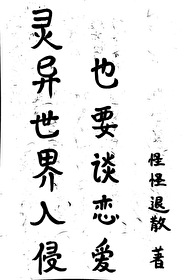 灵异世界入侵
也要谈恋爱
怪怪退散 著